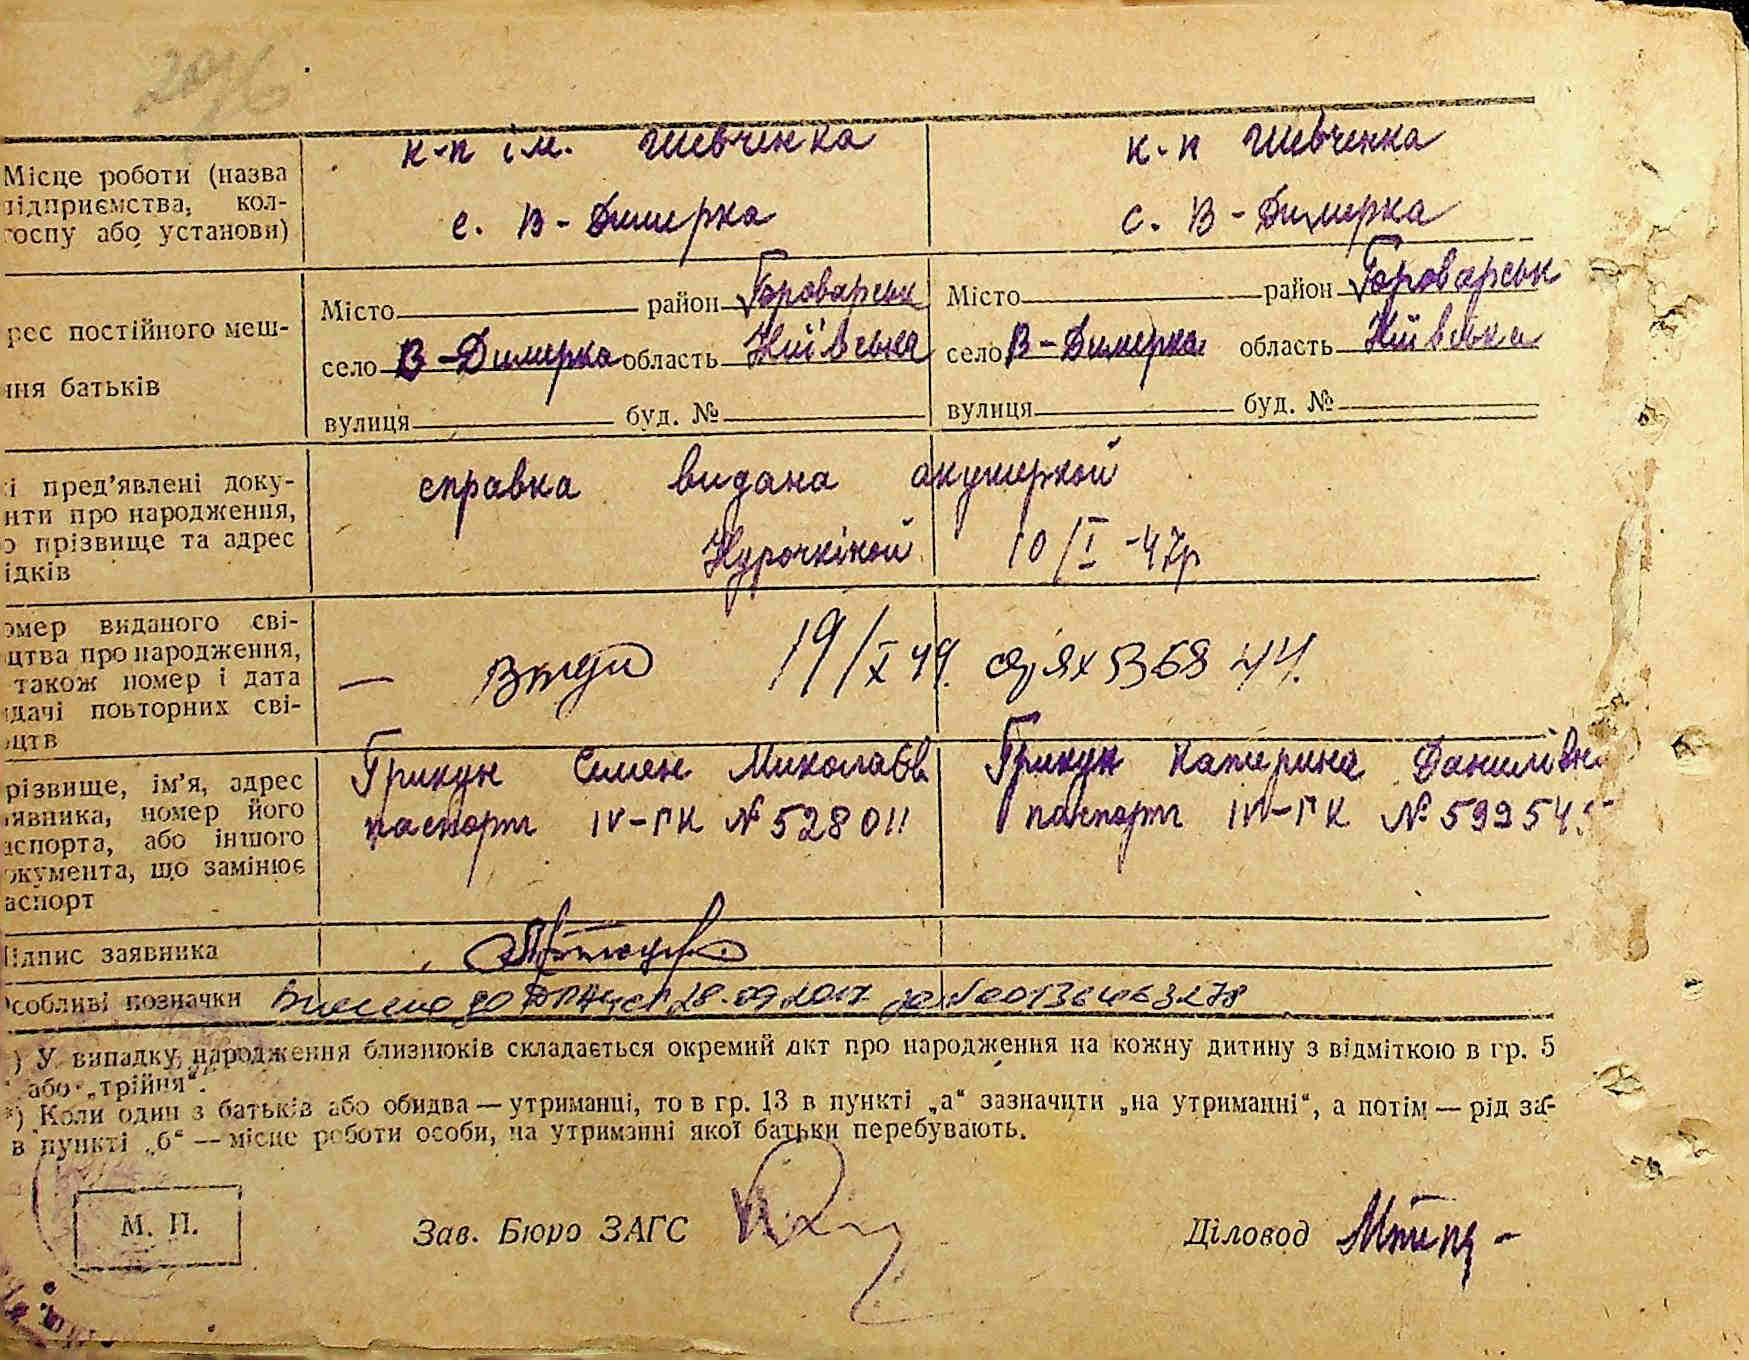 Місце роботи (назва
підприємства, кол-
госпу або установи)
к-п ім. Шевченка
с. В-Димерка
к-п Шевченка
с. В-Димерка
рес постійного меш-
ння батьків
Місто район Броварськ
село В-Димерка область Київська
вулиця буд. №
Місто район Броварськ
село В-Димерка область Київська
вулиця буд. №
і пред’явлені доку-
нти про народження,
о прізвище та адрес
ідків
справка видана акушеркой
Курочкіной 10/I-47р
омер виданого сві-
цтва про народження,
також номер і дата
дачі повторних сві-
оцтв
— 19/X 49.
різвище, ім’я, адрес
явника, номер його
аспорта, або іншого
окумента, що замінює
аспорт
Грикун Семен Миколаєв
паспорт IV-ГК № 528011
Грикун Катерина Данилівн
паспорт IV-ГК № 59954
Підпис заявника
Особливі позначки Внесено до 28.09.2017
) У випадку, народження близнюків складається окремий акт про народження на кожну дитину з відміткою в гр. 5
або „трійня“.
*) Коли один з батьків або обидва — утриманці, то в гр. 13 в пункті „а“ зазначити „на утриманні“, а потім — рід за-
в пункті „б“ — місце роботи особи, на утриманні якої батьки перебувають.
М. П.
Зав. Бюро ЗАГС
Діловод